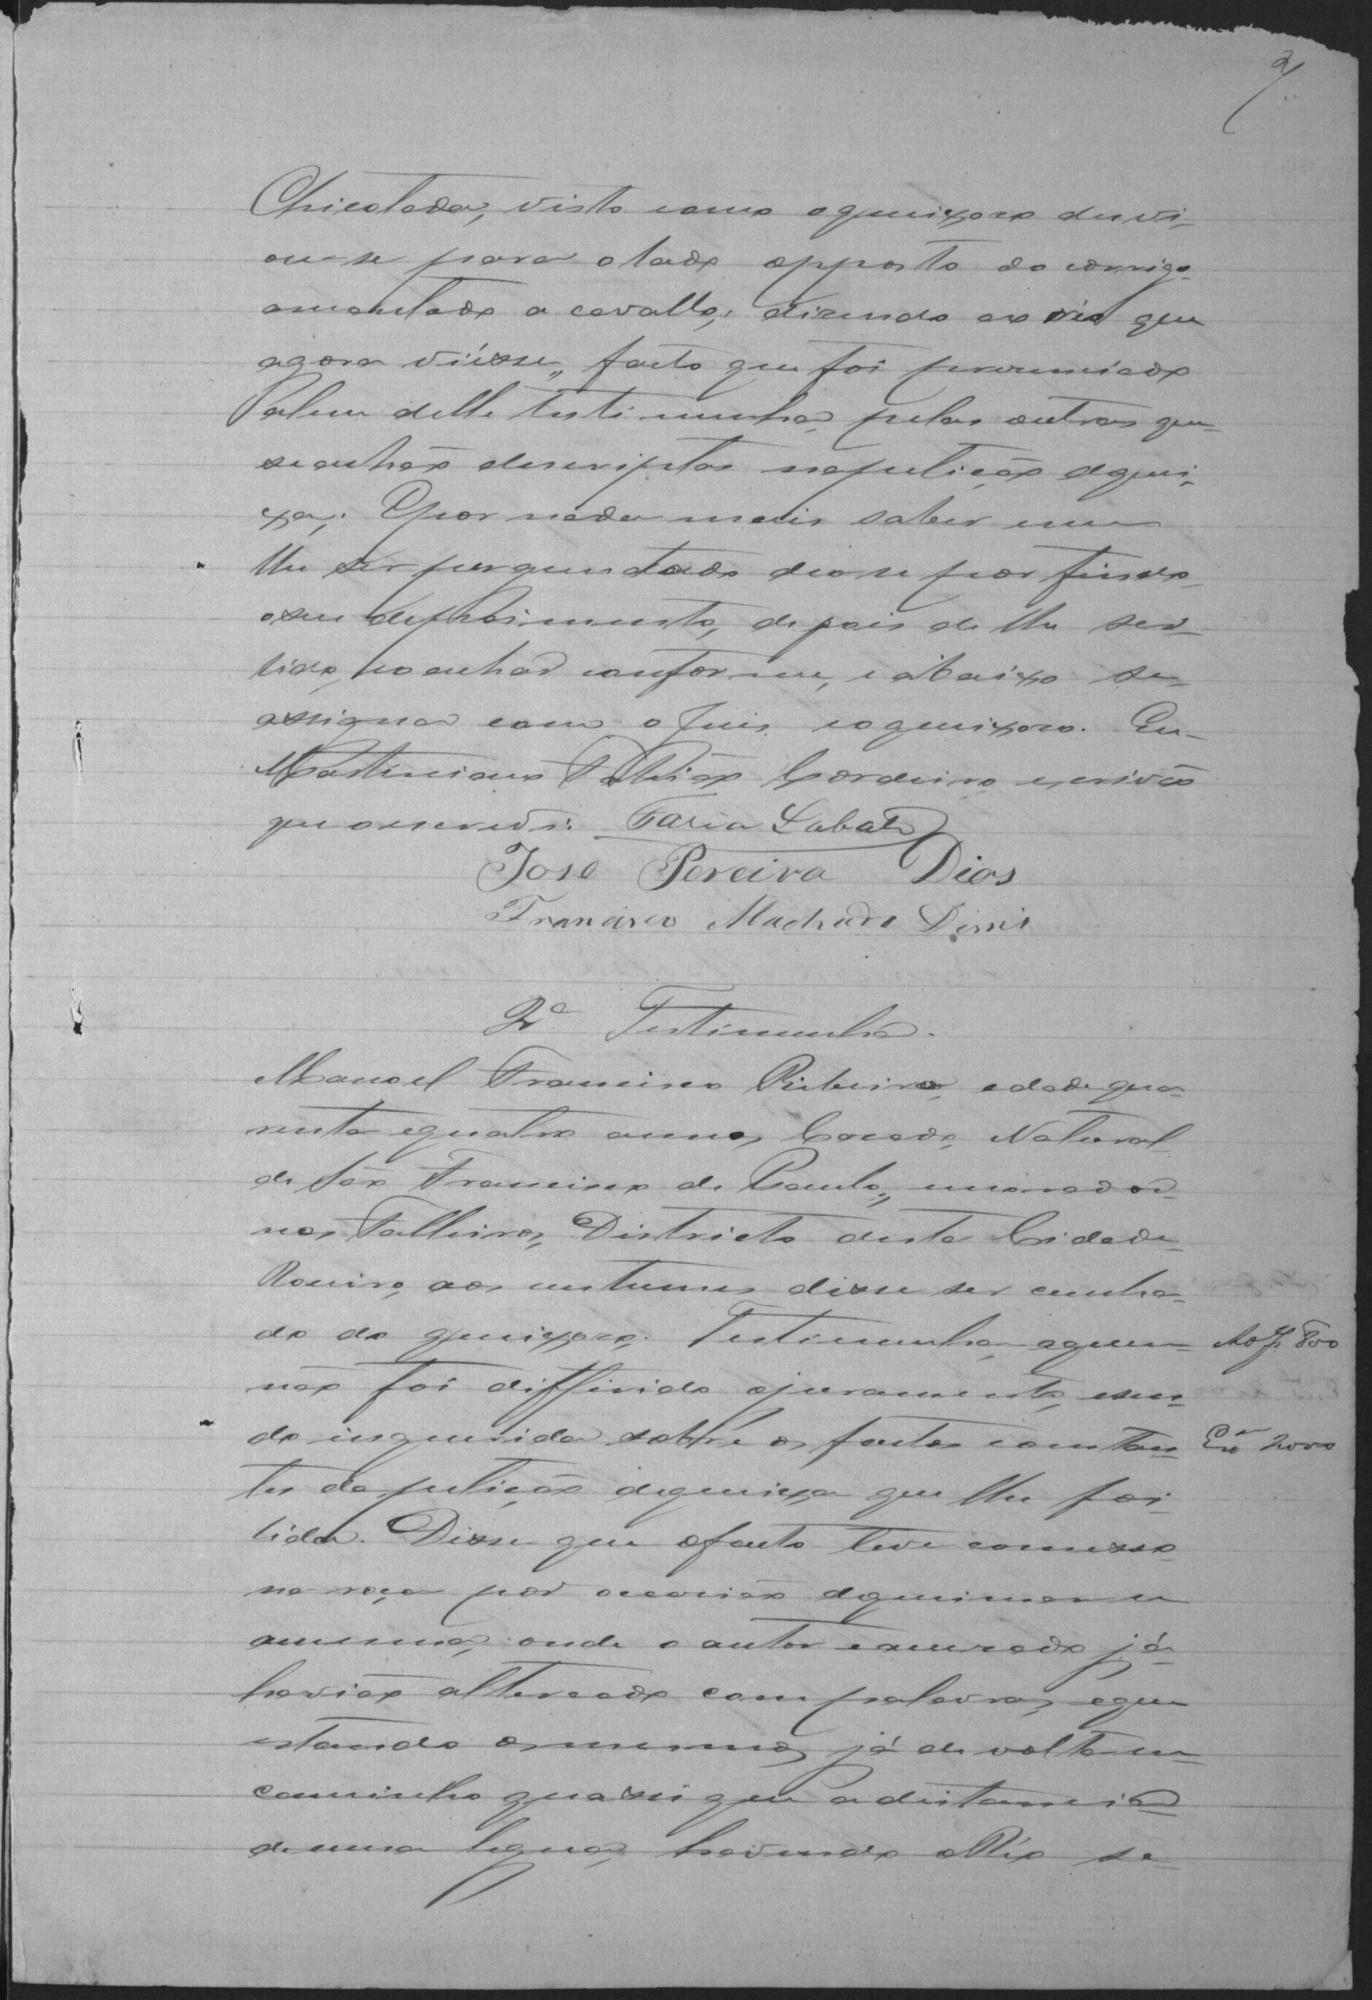 7
Chicotada, visto como o queixoso desvi-
ou-se para o lado opposto do corrigo
amontado a cavallo; dizendo ao réo que
agora viésse, facto que foi prezenciado
alem delle testimunha, pelas outras que
se achão descriptas na petição de quei-
xa. E por nada mais saber nem
lhe ser perguntado deo-se por findo
o seu depoimento, depois de lhe ser
lido, e o achar conforme, e abaixo se
assigna com o Juis, e o queixoso. Eu
Martiniano Cordeiro escrivão
que o escrevi. Faria Lobato
José Pereira Dias
Francisco Machado Diniz
2ª Testimunha.
Manoel Francisco Ribeiro, edade qua-
renta e quatro annos, Cazado, Natural
de São Francisco de Paula, morador
nos Talheiros, Districto desta Cidade
aos custumes disse ser cunha-
do do queixozo. Testimunha, a quem
Ao J. 800
não foi differido o juramento, e sen-
do inquerida sobre os factos constan-
2000
tes da petição de queixa que lhe foi
lida. Disse que o facto teve comesso
na roça por occazião de queimar-se
a mesma, onde o autor e accuzado já
havião altercado com palavras, e que
estando os mesmos já de volta em
caminho quasi que a distancia
de uma legua, havendo o Réo se